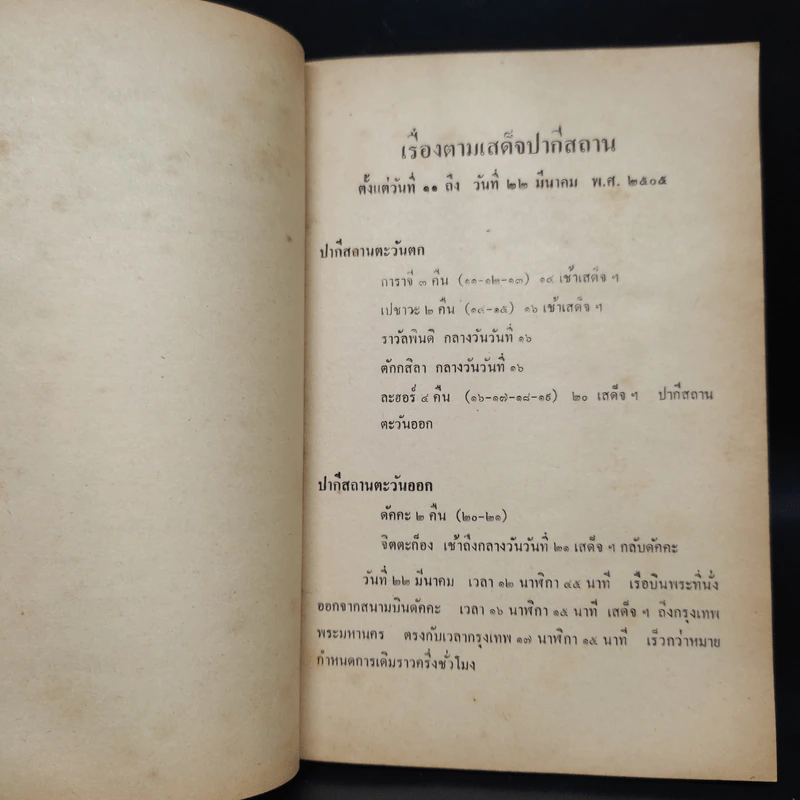 เรื่องตามเสด็จปากีสถาน
ตั้งแต่วันที่ ๑๑ ถึง วันที่ ๒๒ มีนาคม พ.ศ. ๒๕๐๕
ปากีสถานตะวันตก
การาจี ๓ คืน (๑๑-๑๒-๑๓) ๑๔ เช้าเสด็จ ฯ
เปชาวะ ๒ คืน (๑๔-๑๕) ๑๖ เช้าเสด็จ ฯ
ราวัลพินดิ กลางวันวันที่ ๑๖
ตักกสิลา กลางวันวันที่ ๑๖
ละฮอร์ ๔ คืน (๑๖-๑๗-๑๘-๑๙) ๒๐ เสด็จ ฯ ปากีสถาน
ตะวันออก
ปากีสถานตะวันออก
ดัคคะ ๒ คืน (๒๐-๒๑)
จิตตะก็อง เช้าถึงกลางวันวันที่ ๒๑ เสด็จ ฯ กลับดัคคะ
วันที่ ๒๒ มีนาคม เวลา ๑๒ นาฬิกา ๔๕ นาที เรือบินพระที่นั่ง
ออกจากสนามบินดัคคะ เวลา ๑๖ นาฬิกา ๑๕ นาที เสด็จ ฯ ถึงกรุงเทพ
พระมหานคร ตรงกับเวลากรุงเทพ ๑๗ นาฬิกา ๑๕ นาที เร็วกว่าหมาย
กำหนดการเดิมราวครึ่งชั่วโมง